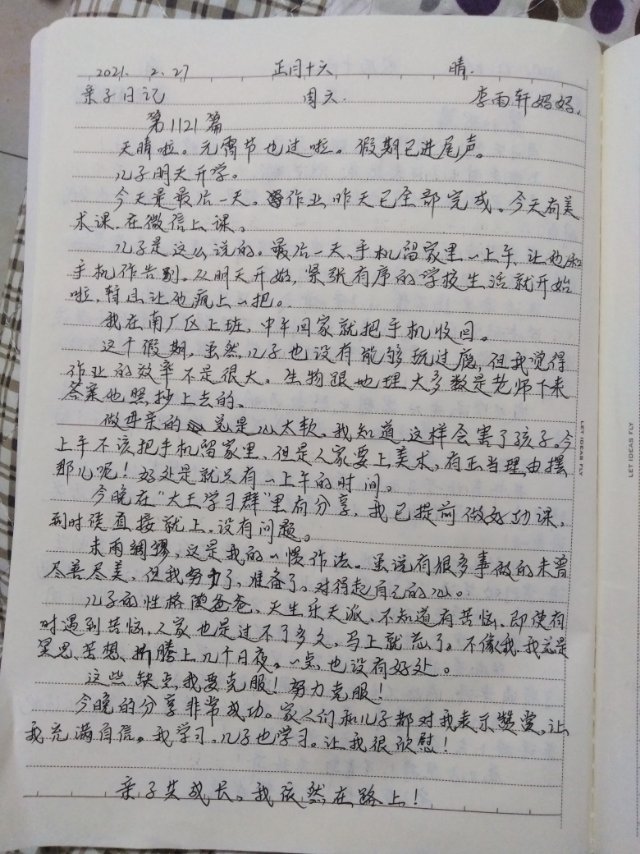 2021. 2. 27 正月十六 晴.
亲子日记 周六. 李雨轩妈妈.
第1121篇
天晴啦。元霄节也过啦。假期已进尾声。
儿子明天开学。
今天是最后一天。作业昨天已全部完成。今天有美
术课.在微信上课。
儿子是这么说的。最后一天、手机留家里一上午、让他和
手机作告别。从明天开始,紧张有序的学校生活就开始
啦,暂且让他疯上一把。
我在南厂区上班,中午回家就把手机收回。
这个假期,虽然儿子也没有能够玩过瘾,但我觉得
作业的效率不是很大。生物跟地理大多数是老师下来
答案他照抄上去的。
做母亲的总是心太软、我知道这样会害了孩子。今
上午不该把手机留家里、但是人家要上美术、有正当理由摆
那儿呢!好处是就只有一上午的时间。
今晚在“大王学习群”里有分享,我已提前做好功课,
到时候直接就上,没有问题。
未雨绸缪,这是我的一惯作法。虽说有很多事做的未曾
尽善尽美,但我努力了,准备了。对得起自己的心。
儿子的性格随爸爸、天生乐天派,不知道有苦恼、即使有
时遇到苦恼,人家也是过不了多久,马上就忘了。不像我,我总是
冥思苦想、折腾上几个日夜。一点也没有好处。
这些缺点我要克服!努力克服!
今晚的分享非常成功。家人们和儿子都对我表示赞赏、让
我充满自信。我学习、儿子也学习。让我很欣慰!
亲子共成长。我依然在路上!
LET IDEAS FLY
LET IDEAS FLY